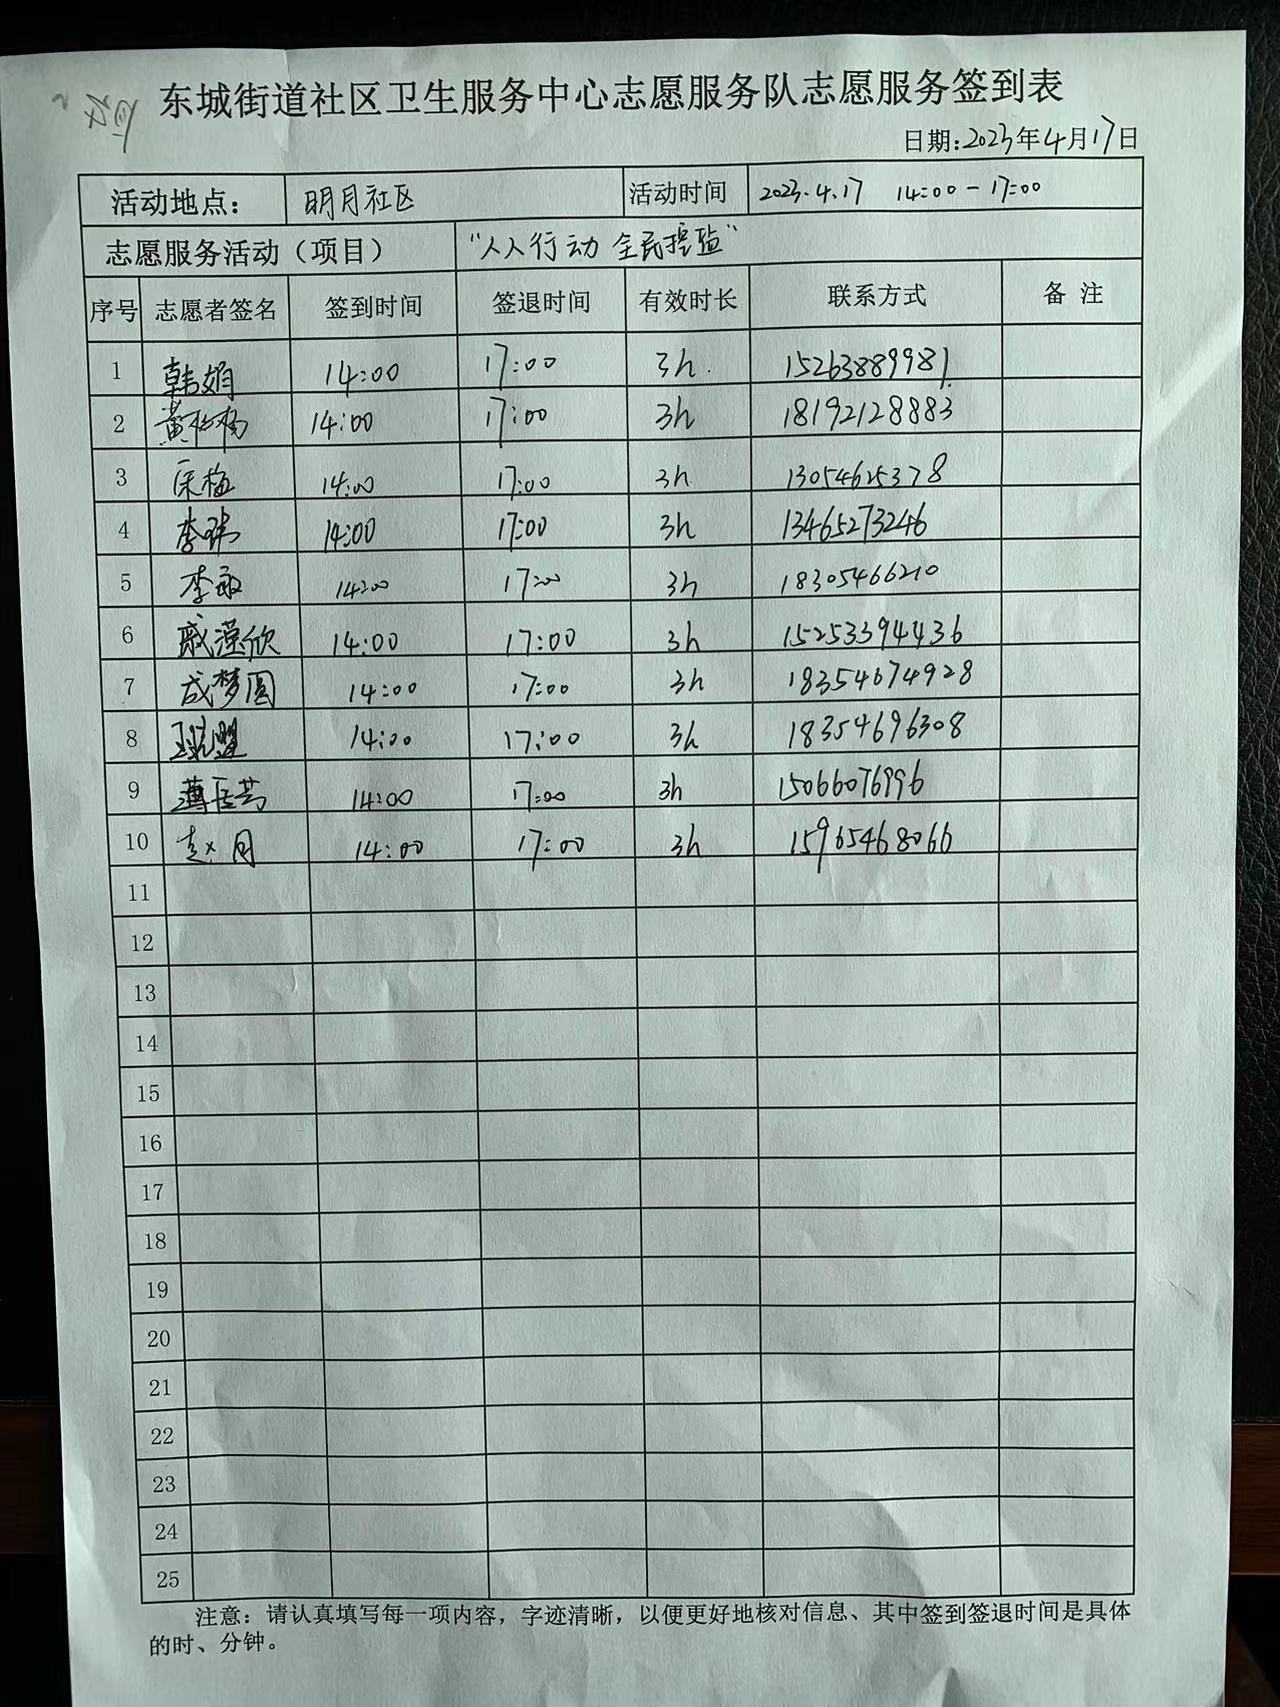 东城街道社区卫生服务中心志愿服务队志愿服务签到表
日期:2023年4月17日
活动地点： 明月社区 活动时间 2023.4.17 14:00-17:00
志愿服务活动（项目） “人人行动 全民控盐”
序号 志愿者签名 签到时间 签退时间 有效时长 联系方式 备 注
1 韩娟 14:00 17:00 3h. 15263889981
2 14:00 17:00 3h 18192128883
3 14:00 17:00 3h 13054625378
4 李玮 14:00 17:00 3h 13465273246
5 李敏 14:00 17:00 3h 18305466210
6 戚滢欣 14:00 17:00 3h 15253394436
7 成梦圆 14:00 17:00 3h 18354674928
8 14:00 17:00 3h 18354696308
9 14:00 17:00 3h 15066076996
10 赵月 14:00 17:00 3h 15965468066
11
12
13
14
15
16
17
18
19
20
21
22
23
24
25
注意：请认真填写每一项内容，字迹清晰，以便更好地核对信息、其中签到签退时间是具体
的时、分钟。